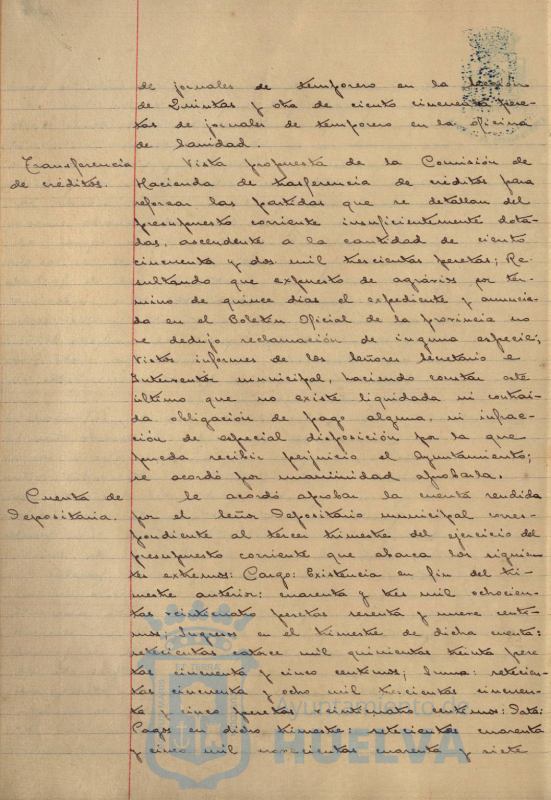 de jornales de temporero en la Sección
de Quintas y otra de ciento cincuenta pese-
tas de jornales de temporero en la oficina
de Sanidad.
Transferencia
de créditos.
Vista propuesta de la Comisión de
Hacienda de trasferencia de créditos para
reforzar las partidas que se detallan del
presupuesto corriente insuficientemente dota-
das, ascendente a la cantidad de ciento
cincuenta y dos mil trescientas pesetas; Re-
sultando que expuesto de por tér-
mino de quince días el expediente y anuncia-
da en el Boletín Oficial de la provincia no
se dedujo reclamación de ninguna especie;
Vistos informes de los Señores Secretario e
Interventor municipal, haciendo constar este
último que no existe liquidada ni contraí-
da obligación de pago alguna, ni infrac-
ción de especial disposición por la que
pueda recibir perjuicio el Ayuntamiento;
se acordó por unanimidad aprobarla.
Cuenta de
Depositaria.
Se acordó aprobar la cuenta rendida
por el Señor Depositario municipal corres-
pondiente al tercer trimestre del ejercicio del
presupuesto corriente que abarca los siguien-
tes extremos: Cargo: Existencia en fin del tri-
mestre anterior: cuarenta y tres mil ochocien-
tas veinticuatro pesetas sesenta y nueve cénti-
mos; Ingresos en el trimestre de dicha cuenta:
setecientas catorce mil quinientas treinta pese-
tas cincuenta y cinco céntimos; Suma: setecien-
tas cincuenta y ocho mil trescientas cincuen-
ta cinco pesetas veinticuatro céntimos: Data:
Pagos en dicho trimestre: setecientas cuarenta
y cinco mil novecientas cuarenta y siete
Ayuntamiento de
HUELVA